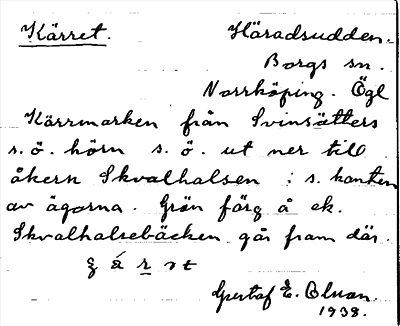 Kärret.
Häradsudden.
Borgs sn.
Norrköping. Ögl
Kärrmarken från Svinsätters
s.ö. hörn s.ö. ut ner till
åkern Skvalhalsen i s. kanten
av ägorna. Grön färg å ek.
Skvalhalsebäcken går fram där.
Gustaf E. Bluan.
1938.